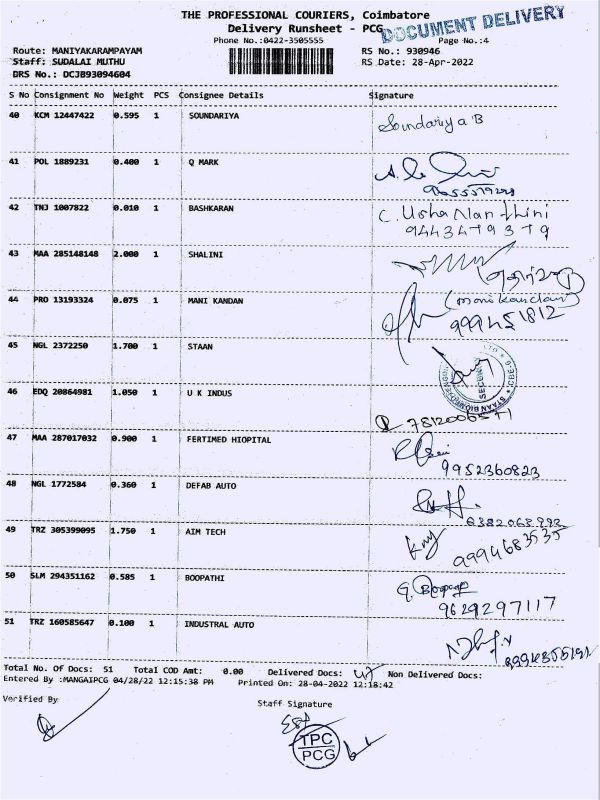 THE PROFESSIONAL COURIERS, Coimbatore
DOCUMENT DELIVERY
Delivery Runsheet - PCG
Phone No.:0422-3505555 Page No.:4
Route: MANIYAKARAMPAYAM RS No.: 930946
Staff: SUDALAI MUTHU RS Date: 28-Apr-2022
DRS No.: DCJB93094604
S No Consignment No Weight PCS Consignee Details Signature
40 KCM 12447422 0.595 1 SOUNDARIYA Soundariya B
41 POL 1889231 0.400 1 Q MARK
42 TNJ 1007822 0.010 1 BASHKARAN C. Usha Nanthini
9443479379
43 MAA 285148148 2.000 1 SHALINI
44 PRO 13193324 0.075 1 MANI KANDAN (manikandan)
9994551812
45 NGL 2372250 1.700 1 STAAN
SECURITY
46 EDQ 20864981 1.050 1 U K INDUS
7812006571
47 MAA 287017032 0.900 1 FERTIMED HIOPITAL
9952360823
48 NGL 1772584 0.360 1 DEFAB AUTO
49 TRZ 305399095 1.750 1 AIM TECH
9994683535
50 SLM 294351162 0.585 1 BOOPATHI G. Boopathi
9629297117
51 TRZ 160585647 0.100 1 INDUSTRAL AUTO
Total No. Of Docs: 51 Total COD Amt: 0.00 Delivered Docs: 47 Non Delivered Docs:
Entered By :MANGAIPCG 04/28/22 12:15:38 PM Printed On: 28-04-2022 12:18:42
Verified By Staff Signature
TPC
PCG